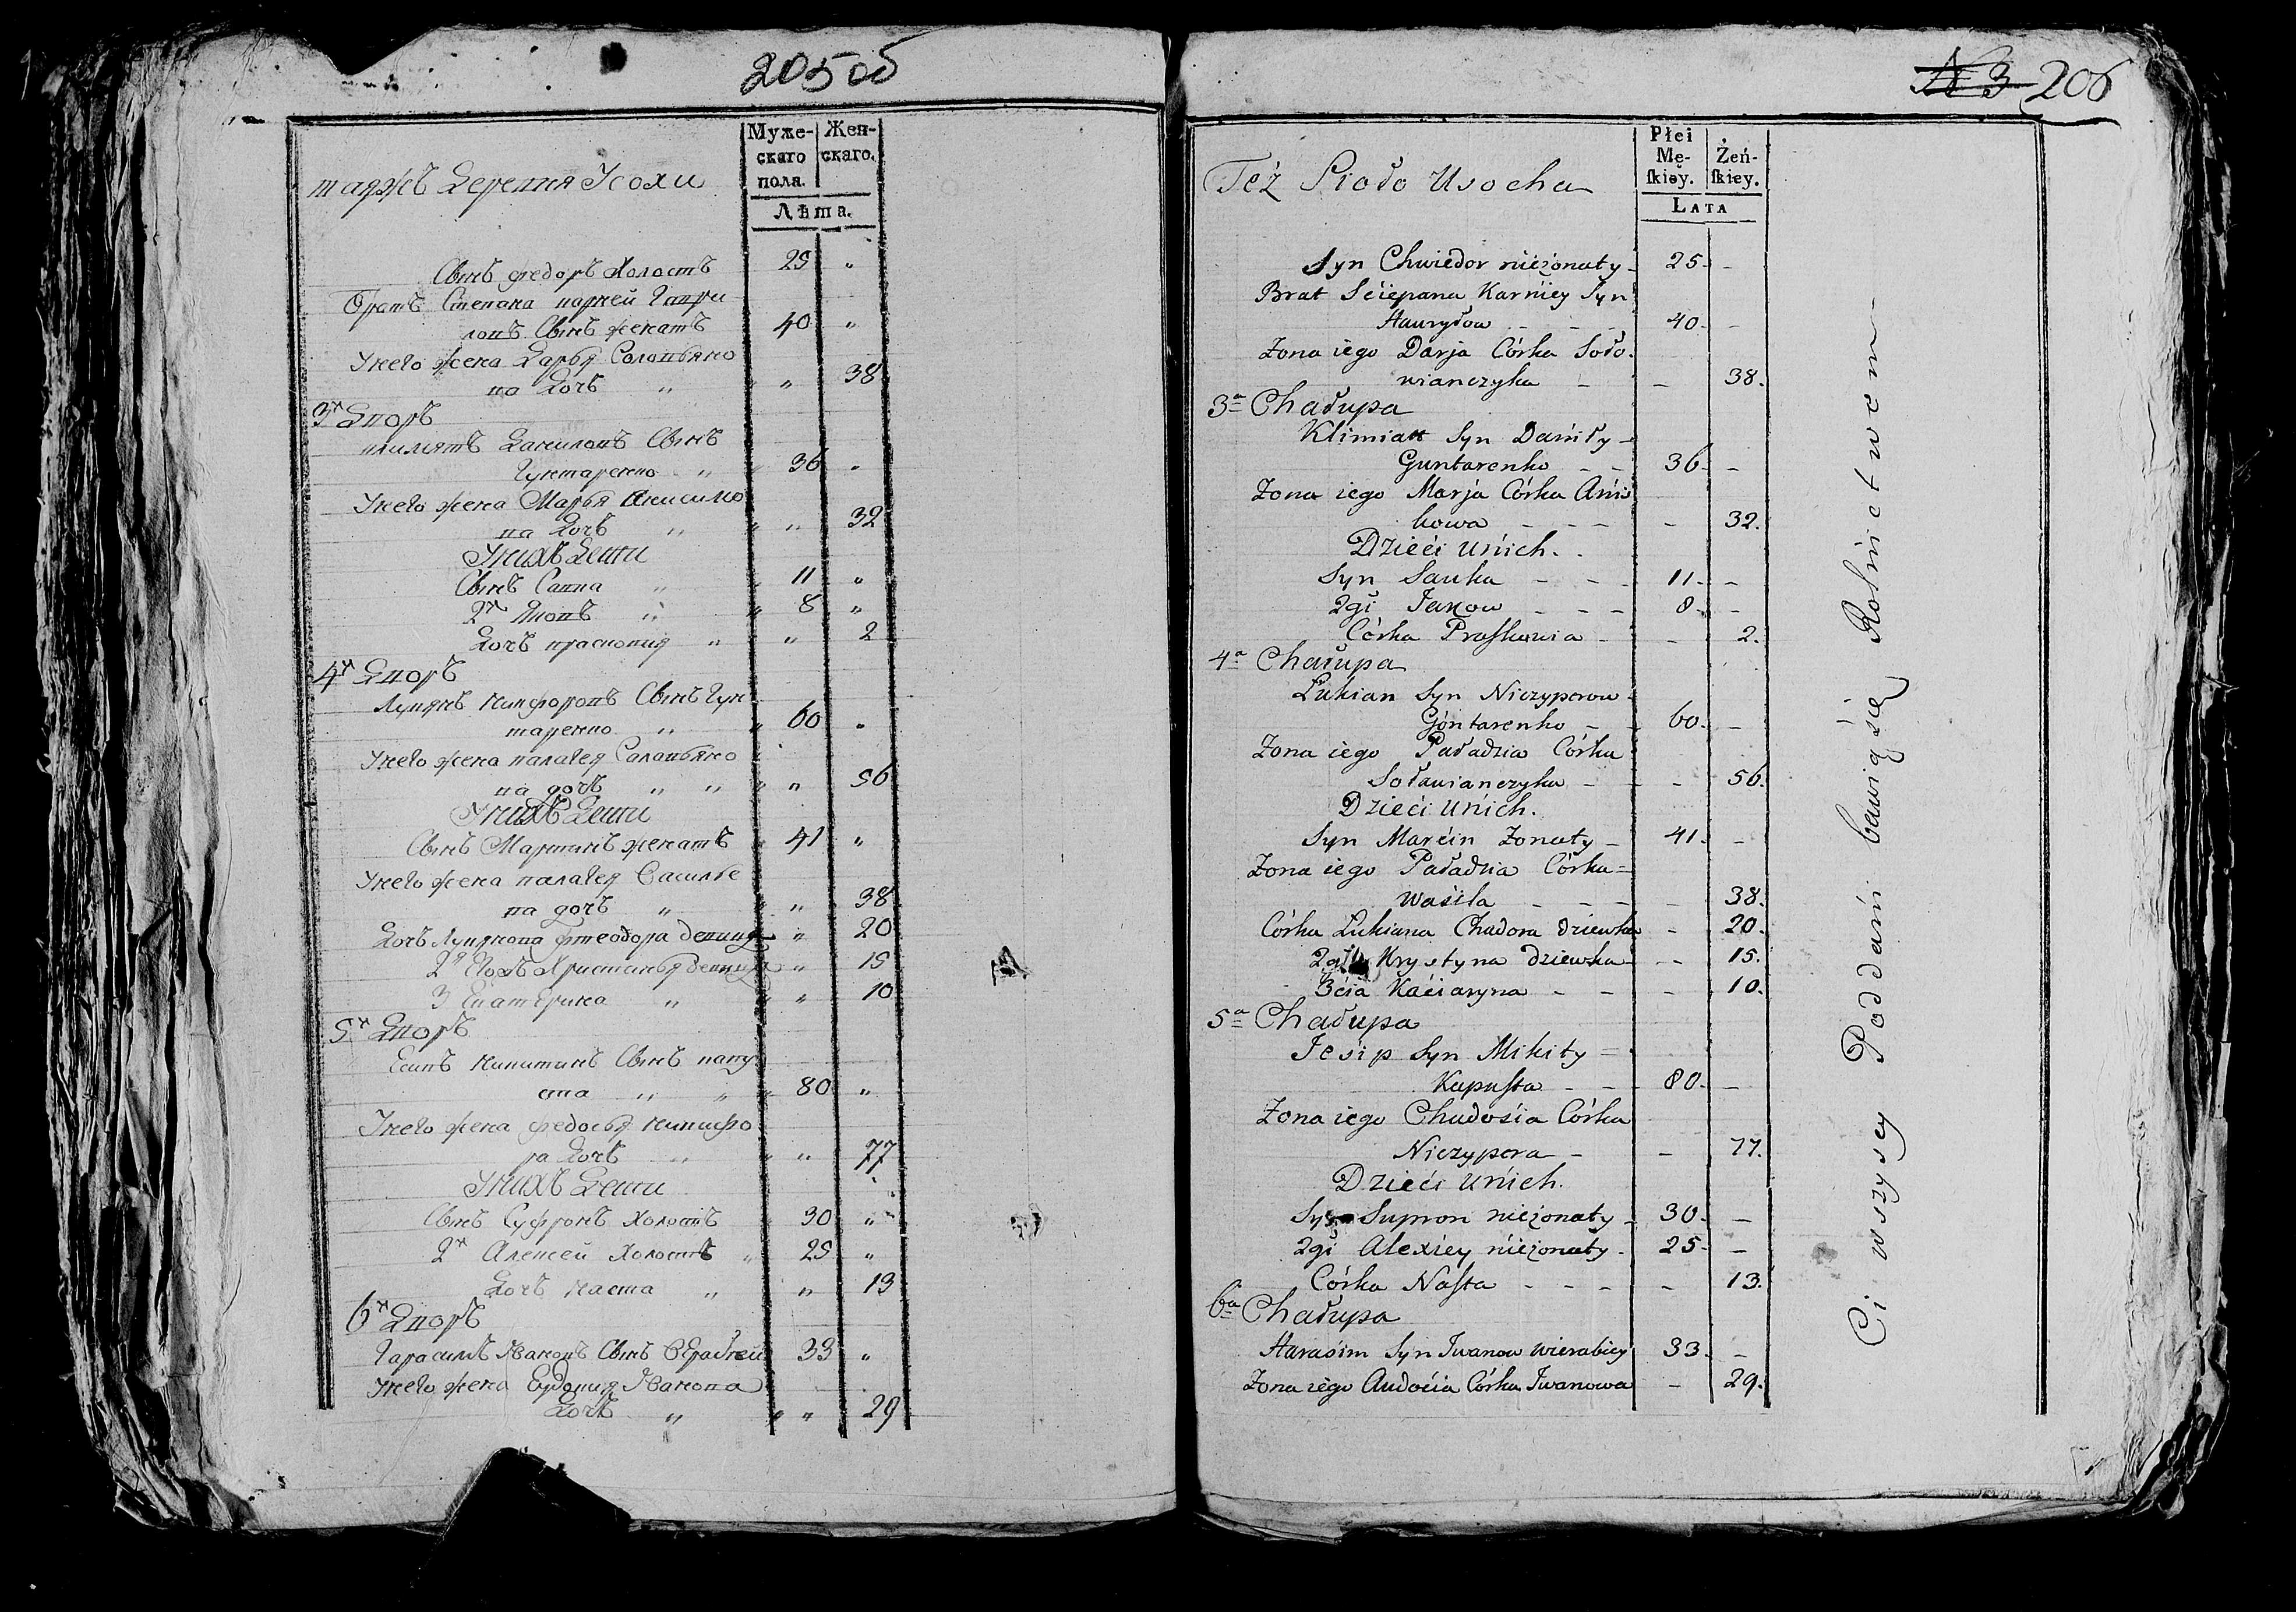 205 об
Муже-
скаго
пола.
Жен-
скаго.
Лѣта.
таяжъ Деревня Усохи
Сынъ федоръ Холостъ 25 "
Братъ Степана карней Гаври
ловъ Сынъ женатъ 40 "
У него жена Дарья Соловьяно
ва Дочь " " 38
3й Дворъ
климятъ Даниловъ Сынъ
Гунтаренко " 36 "
У него жена Марья Анисимо
ва Дочь " " 32
У нихъ Дети
Сынъ Савка " 11 "
2й Яковъ " 8 "
Дочь прасковия " " 2
4й Дворъ
Лукянъ никифоровъ Сынъ Гун
таренко " 60 "
У него жена палагея Саловьяно
ва дочь " " " 56
У нихъ Дети
Сынъ Мартинъ женатъ 41 "
У него жена палагея Василье
ва дочь " " 38
Дочь Лукянова фтеодора девица " 20
2я Христинья девица " 15
3 Екатерина " " 10
5й Дворъ
Есипъ никитинъ Сынъ капу
ста " " 80 "
У него жена федосья никифо
ра Дочь " " 77
У нихъ Дети
Сынъ Суфронъ Холостъ 30 "
2й Алексей Холостъ " 25 "
Дочь наста " " 13
6й Дворъ
Гарасимъ Ивановъ Сынъ Верабей 33 "
У него жена Евдокия Иванова
Дочь " " 29
№ 3 206
Płci
Mę-
ſkiéy.
Żeń-
ſkiéy.
LATA
Też Sioło Usocha
Syn Chwiedor nieżonaty 25. –
Brat Sciepana Karniey Syn
Hauryłow – – 40. –
Żona iego Darja Córka Soło-
wianczyka – – 38.
3a Chałupa
Klimiatt Syn Daniły –
Guntarenko – – 36. –
Żona iego Marja Córka Anis
kowa – – – – 32.
Dzieci u nich.
Syn Sauka – – – 11. –
2gi Jakow – – – 8. –
Córka Praſkowia – – 2.
4a Chałupa
Lukian Syn Niczyperow
Góntarenko – – 60. –
Żona iego Paładzia Córka
Sołowianczyka – – 56.
Dzieci u nich.
Syn Marcin Żonaty – 41. –
Żona iego Paładzia Córka =
Wasila – – – – 38.
Córka Lukiana Chadora dziewka – 20.
2ga Krystyna dziewka – – 15.
3cia Kaciaryna – – – 10.
5a Chałupa
Jesip Syn Mikity =
Kapuſta – – 80. –
Żona iego Chadosia Córka
Niczypora – – 77.
Dzieci u nich.
Syn Supron nieżonaty – 30. –
2gi Alexiey nieżonaty – 25. –
Córka Naſta – – – – 13.
6a Chałupa
Harasim Syn Iwanow Wierabiey 33. –
Żona iego Audocia Córka Iwanowa – 29.
Ci wszyscy Poddani bawią się Rolnictwem –